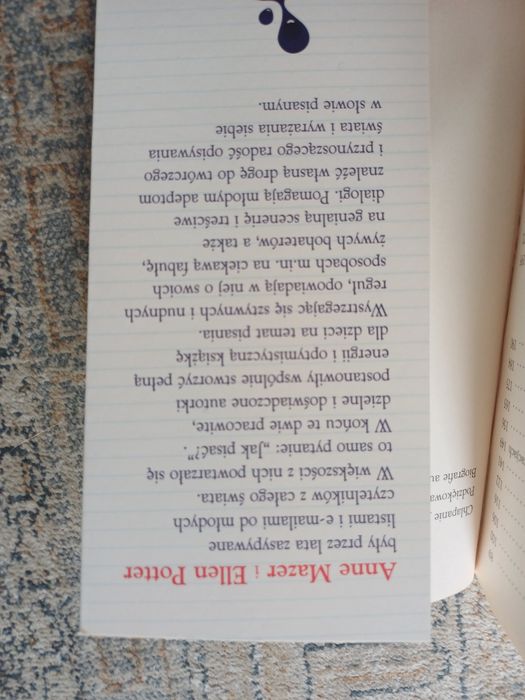 Anne Mazer i Ellen Potter
były przez lata zasypywane
listami i e-mailami od młodych
czytelników z całego świata.
W większości z nich powtarzało się
to samo pytanie: „Jak pisać?”.
W końcu te dwie pracowite,
dzielne i doświadczone autorki
postanowiły wspólnie stworzyć pełną
energii i optymistyczną książkę
dla dzieci na temat pisania.
Wystrzegając się sztywnych i nudnych
reguł, opowiadają w niej o swoich
sposobach m.in. na ciekawą fabułę,
żywych bohaterów, a także
na genialną scenerię i treściwe
dialogi. Pomagają młodym adeptom
znaleźć własną drogę do twórczego
i przynoszącego radość opisywania
świata i wyrażania siebie
w słowie pisanym.
Chlapanie
Podziękowa
Biografie au